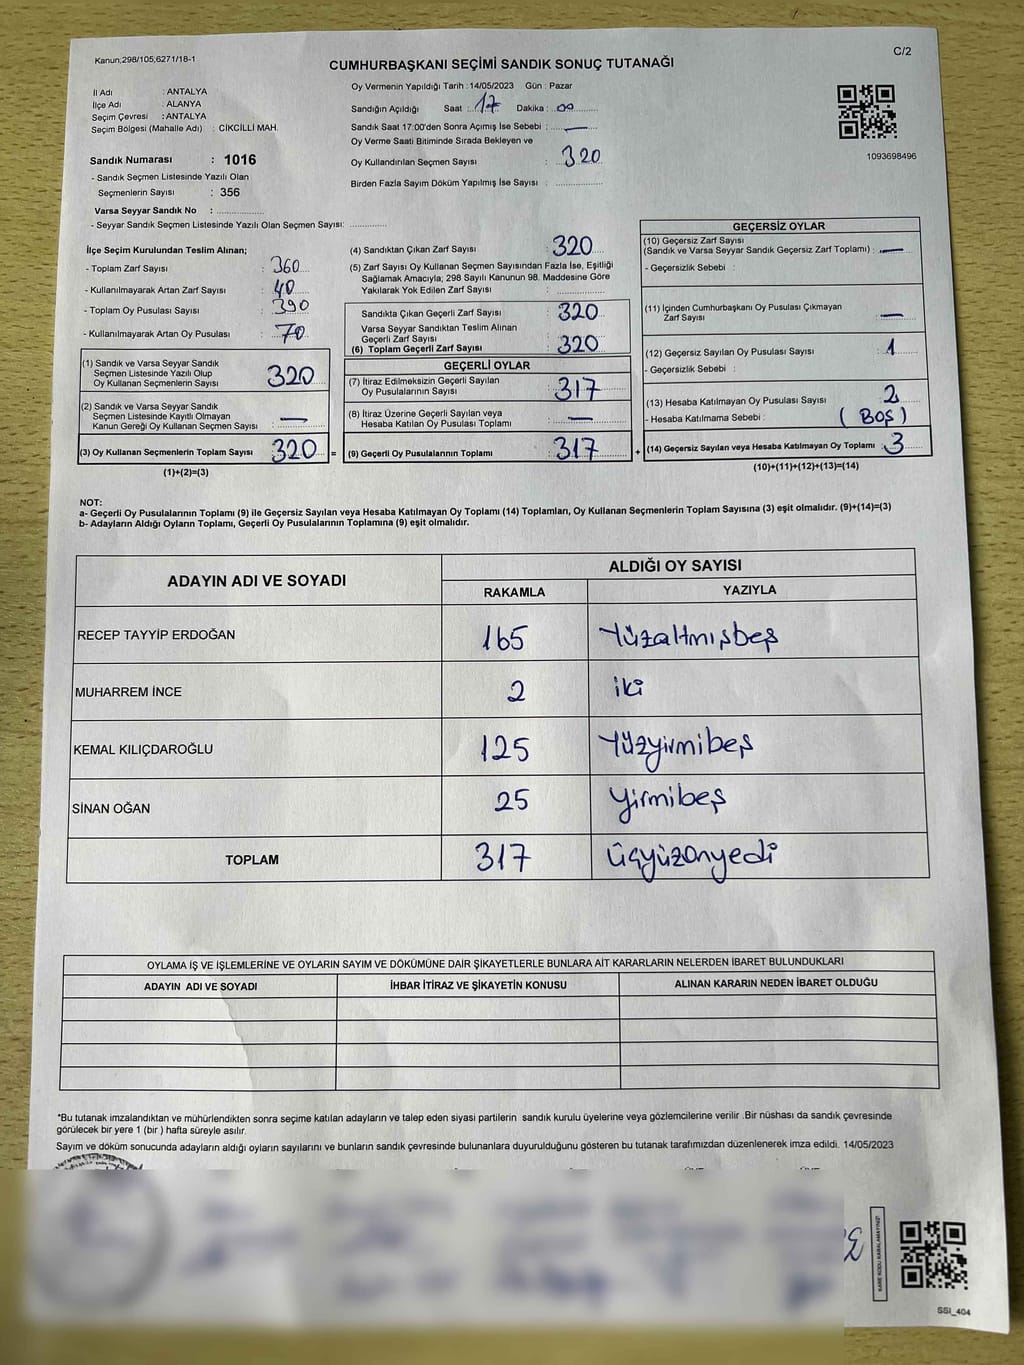 Kanun;298/105,6271/18-1
C/2
CUMHURBAŞKANI SEÇİMİ SANDIK SONUÇ TUTANAĞI
İl Adı : ANTALYA
İlçe Adı : ALANYA
Seçim Çevresi : ANTALYA
Seçim Bölgesi (Mahalle Adı) : CİKCİLLİ MAH.
Sandık Numarası : 1016
- Sandık Seçmen Listesinde Yazılı Olan
Seçmenlerin Sayısı : 356
Varsa Seyyar Sandık No : ....................
- Seyyar Sandık Seçmen Listesinde Yazılı Olan Seçmen Sayısı: ..............
Oy Vermenin Yapıldığı Tarih :14/05/2023 Gün : Pazar
Sandığın Açıldığı Saat : 17 Dakika : 00
Sandık Saat 17:00'den Sonra Açımış İse Sebebi : —
Oy Verme Saati Bitiminde Sırada Bekleyen ve
Oy Kullandırılan Seçmen Sayısı : 320
Birden Fazla Sayım Döküm Yapılmış İse Sayısı : ................
1093698496
İlçe Seçim Kurulundan Teslim Alınan;
- Toplam Zarf Sayısı : 360
- Kullanılmayarak Artan Zarf Sayısı : 40
- Toplam Oy Pusulası Sayısı : 390
- Kullanılmayarak Artan Oy Pusulası : 70
(1) Sandık ve Varsa Seyyar Sandık
Seçmen Listesinde Yazılı Olup
Oy Kullanan Seçmenlerin Sayısı : 320
(2) Sandık ve Varsa Seyyar Sandık
Seçmen Listesinde Kayıtlı Olmayan
Kanun Gereği Oy Kullanan Seçmen Sayısı : —
(3) Oy Kullanan Seçmenlerin Toplam Sayısı : 320 =
(1)+(2)=(3)
(4) Sandıktan Çıkan Zarf Sayısı : 320
(5) Zarf Sayısı Oy Kullanan Seçmen Sayısından Fazla İse, Eşitliği
Sağlamak Amacıyla; 298 Sayılı Kanunun 98. Maddesine Göre
Yakılarak Yok Edilen Zarf Sayısı : ................
Sandıkta Çıkan Geçerli Zarf Sayısı : 320
Varsa Seyyar Sandıktan Teslim Alınan
Geçerli Zarf Sayısı :
(6) Toplam Geçerli Zarf Sayısı : 320
GEÇERLİ OYLAR
(7) İtiraz Edilmeksizin Geçerli Sayılan
Oy Pusulalarının Sayısı : 317
(8) İtiraz Üzerine Geçerli Sayılan veya
Hesaba Katılan Oy Pusulası Toplamı : —
(9) Geçerli Oy Pusulalarının Toplamı : 317 +
GEÇERSİZ OYLAR
(10) Geçersiz Zarf Sayısı
(Sandık ve Varsa Seyyar Sandık Geçersiz Zarf Toplamı) : —
- Geçersizlik Sebebi :
(11) İçinden Cumhurbaşkanı Oy Pusulası Çıkmayan
Zarf Sayısı : —
(12) Geçersiz Sayılan Oy Pusulası Sayısı : 1
- Geçersizlik Sebebi :
(13) Hesaba Katılmayan Oy Pusulası Sayısı : 2
- Hesaba Katılmama Sebebi : ( BOŞ )
(14) Geçersiz Sayılan veya Hesaba Katılmayan Oy Toplamı : 3
(10)+(11)+(12)+(13)=(14)
NOT:
a- Geçerli Oy Pusulalarının Toplamı (9) ile Geçersiz Sayılan veya Hesaba Katılmayan Oy Toplamı (14) Toplamları, Oy Kullanan Seçmenlerin Toplam Sayısına (3) eşit olmalıdır. (9)+(14)=(3)
b- Adayların Aldığı Oyların Toplamı, Geçerli Oy Pusulalarının Toplamına (9) eşit olmalıdır.
ADAYIN ADI VE SOYADI
ALDIĞI OY SAYISI
RAKAMLA YAZIYLA
RECEP TAYYİP ERDOĞAN 165 Yüzaltmışbeş
MUHARREM İNCE 2 iki
KEMAL KILIÇDAROĞLU 125 Yüzyirmibeş
SİNAN OĞAN 25 Yirmibeş
TOPLAM 317 Üçyüzonyedi
OYLAMA İŞ VE İŞLEMLERİNE VE OYLARIN SAYIM VE DÖKÜMÜNE DAİR ŞİKAYETLERLE BUNLARA AİT KARARLARIN NELERDEN İBARET BULUNDUKLARI
ADAYIN ADI VE SOYADI İHBAR İTİRAZ VE ŞİKAYETİN KONUSU ALINAN KARARIN NEDEN İBARET OLDUĞU
*Bu tutanak imzalandıktan ve mühürlendikten sonra seçime katılan adayların ve talep eden siyasi partilerin sandık kurulu üyelerine veya gözlemcilerine verilir .Bir nüshası da sandık çevresinde
görülecek bir yere 1 (bir ) hafta süreyle asılır.
Sayım ve döküm sonucunda adayların aldığı oyların sayılarını ve bunların sandık çevresinde bulunanlara duyurulduğunu gösteren bu tutanak tarafımızdan düzenlenerek imza edildi. 14/05/2023
KARE KODU KARALAMAYINIZ!
SSI_404